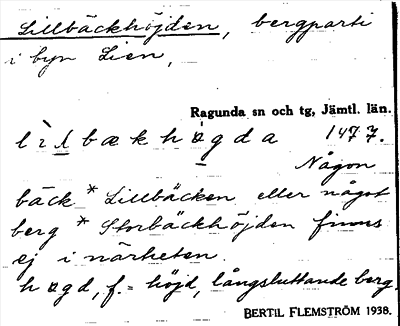 Lillbäckhöjden, bergparti
i byn Lien,
Ragunda sn och tg, Jämtl. län.
lìlbækhøgda 1477.
Någon
bäck * Lillbäcken eller något
berg * Storbäckhöjden finns
ej i närheten.
høgd, f. = höjd, långsluttande berg.
BERTIL FLEMSTRÖM 1938.